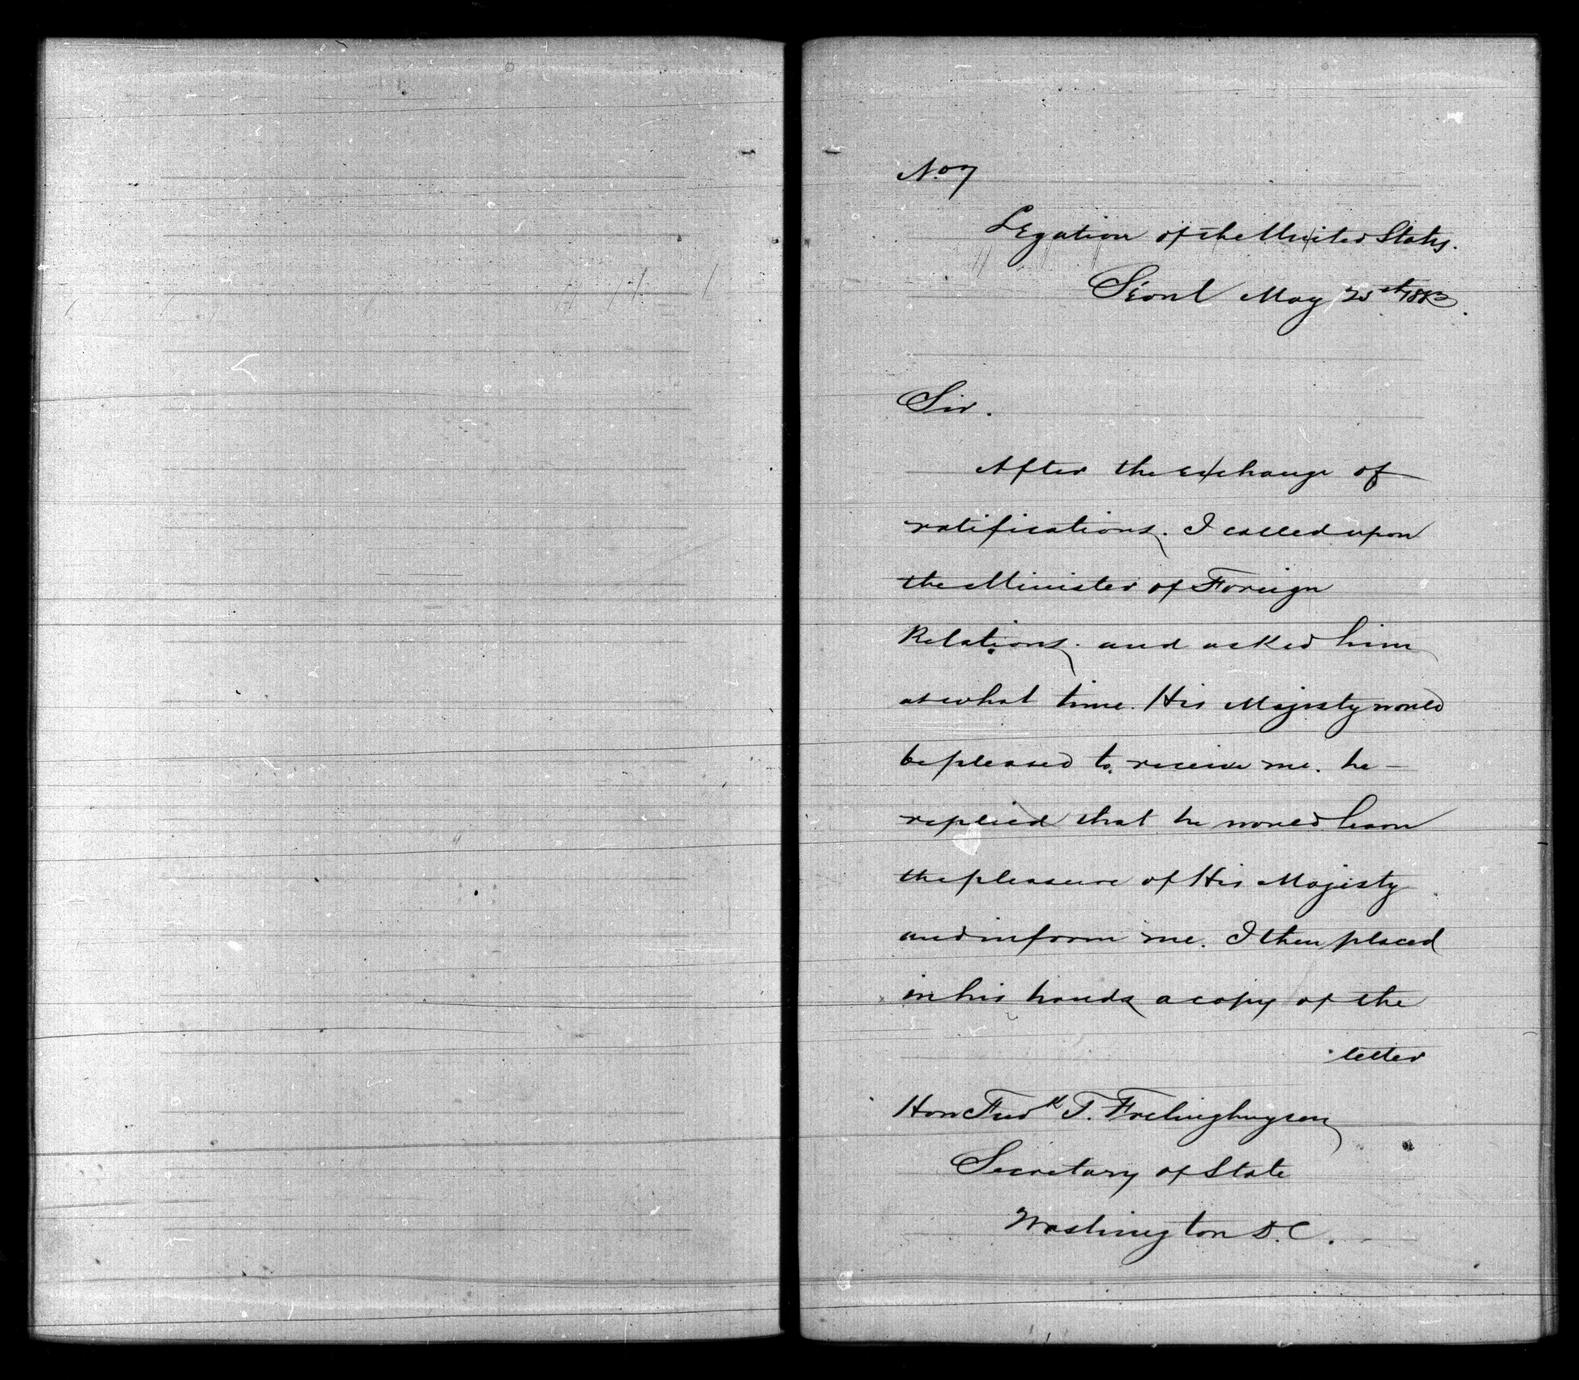 No 7
Legation of the United States.
Séoul May 25th 1883.
Sir.
After the exchange of
ratifications. I called upon
the Minister of Foreign
Relations. and asked him
at what time. His Majesty would
be pleased to receive me. he —
replied that he would learn
the pleasure of His Majesty
and inform me. I then placed
in his hands a copy of the
letter
Hon Fredk T. Frelinghuysen
Secretary of State
Washington D.C.